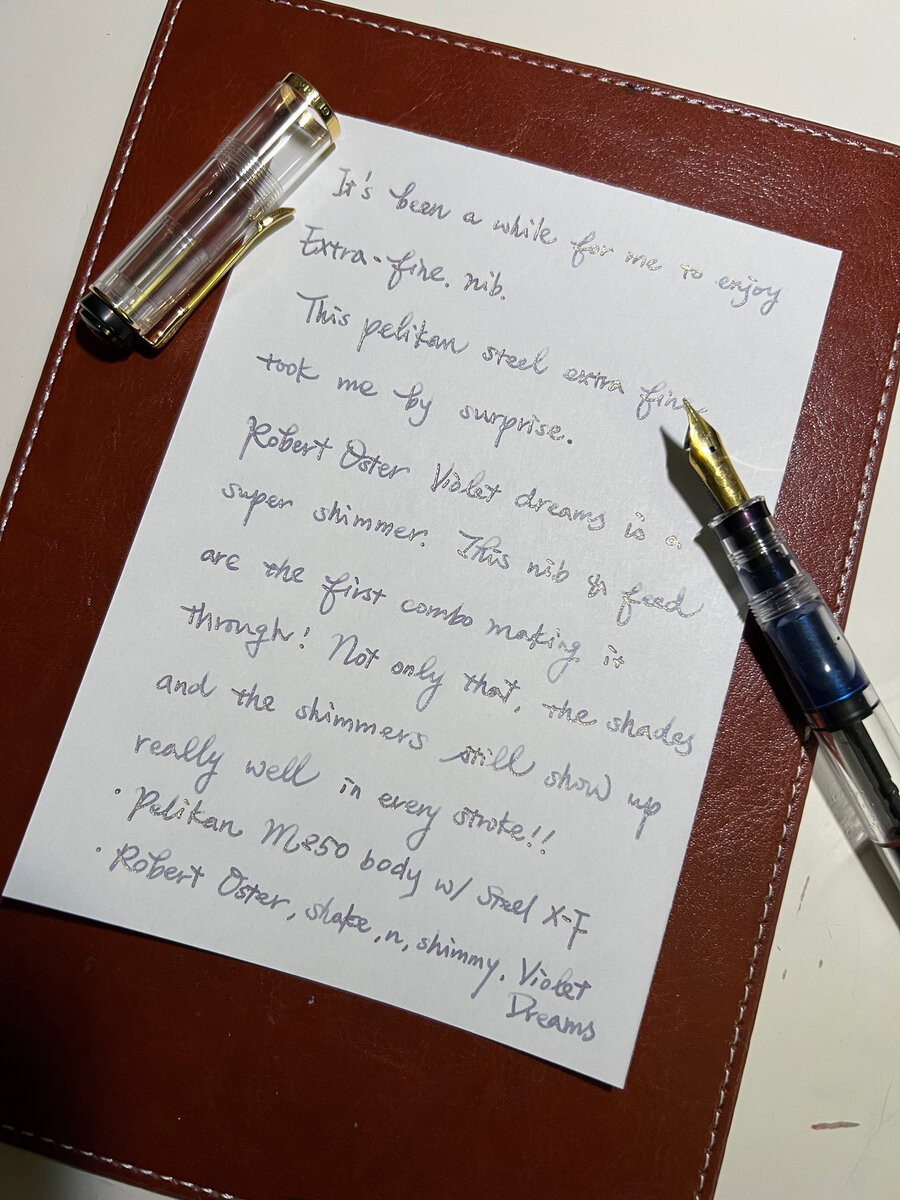 It's been a while for me to enjoy
Extra-fine. nib.
This pelikan steel extra fine
took me by surprise.
Robert Oster Violet dreams is a
super shimmer. This nib & feed
are the first combo making it
through! Not only that, the shades
and the shimmers still show up
really well in every stroke!!
· Pelikan M250 body w/ Steel X-F
· Robert Oster, shake, n, shimmy. Violet
Dreams